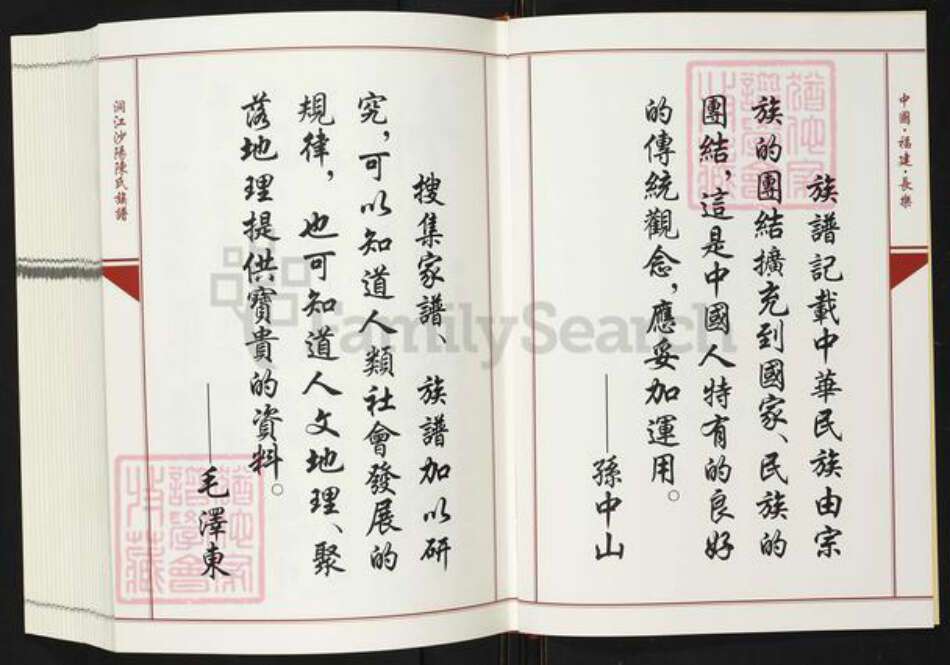 中國·福建·長樂
族譜記載中華民族由宗
族的團結擴充到國家、民族的
團結，這是中國人特有的良好
的傳統觀念，應妥加運用。
——孫中山
搜集家譜、族譜加以研
究，可以知道人類社會發展的
規律，也可知道人文地理、聚
落地理提供寶貴的資料。
——毛澤東
洞江沙陽陳氏族譜
FamilySearch